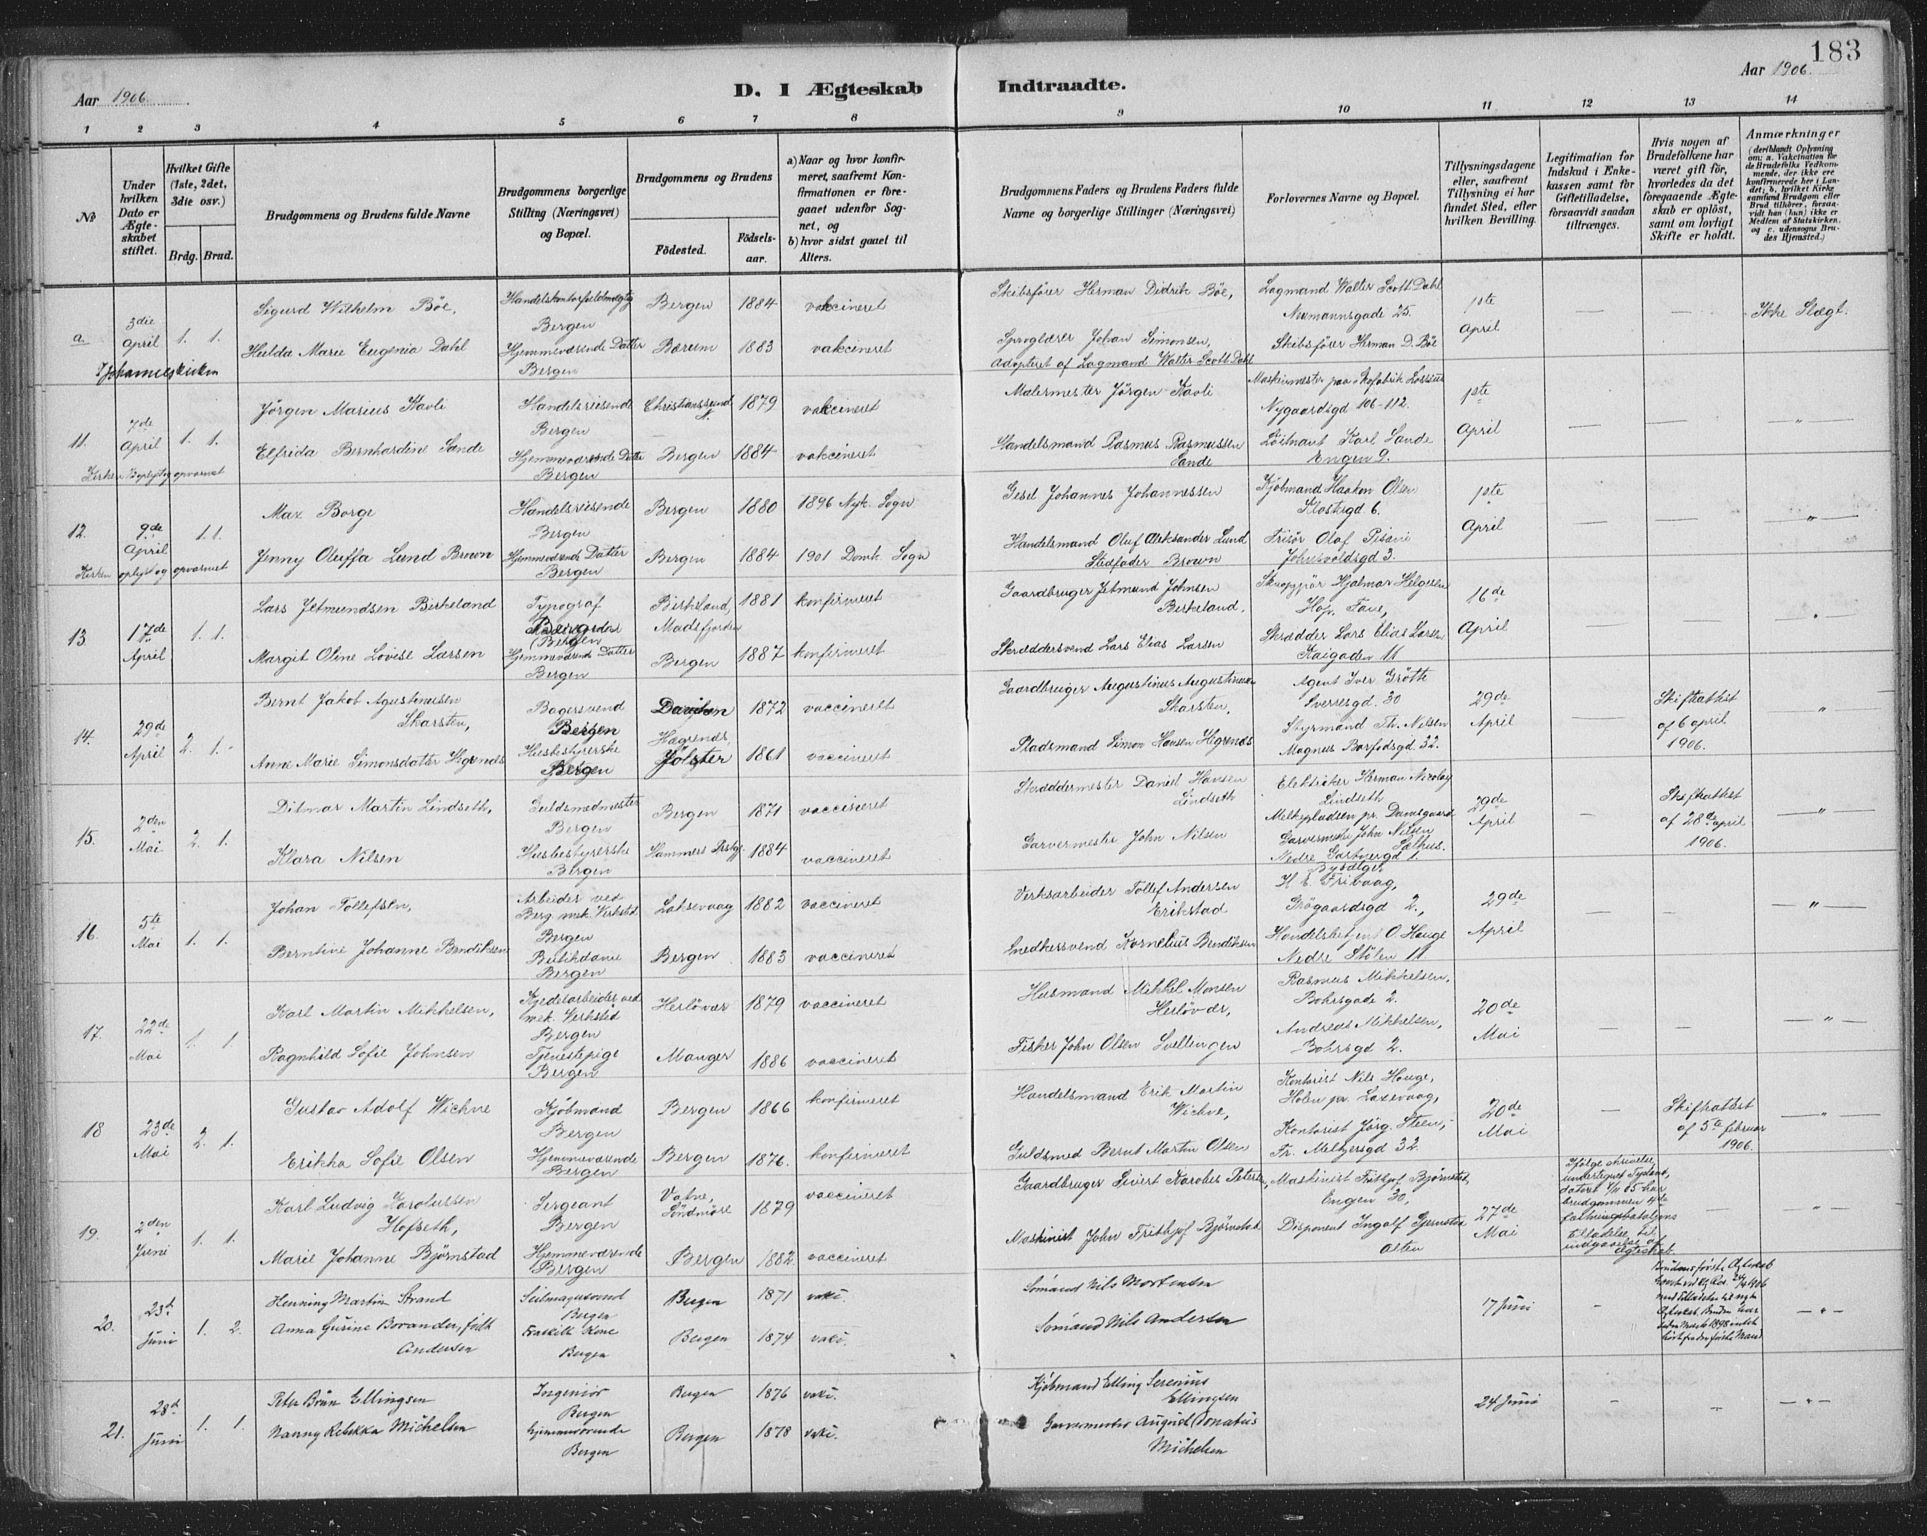 183
Aar 1906.
D. I Ægteskab
Indtraadte.
Aar 1906.
1 2 3 4 5 6 7 8 9 10 11 12 13 14
No
Under hvilken Dato er Ægteskabet stiftet.
Hvilket Gifte (1ste, 2det, 3die osv.)
Brdg. Brud.
Brudgommens og Brudens fulde Navne
Brudgommens borgerlige Stilling (Næringsvei) og Bopæl.
Brudgommens og Brudens
Födested. Födsels-aar.
a) Naar og hvor konfirmeret, saafremt Konfirmationen er foregaaet udenfor Sognet, og
b) hvor sidst gaaet til Alters.
Brudgommens Faders og Brudens Faders fulde Navne og borgerlige Stillinger (Næringsvei)
Forlovernes Navne og Bopæl.
Tillysningsdagene eller, saafremt Tillysning ei har fundet Sted, efter hvilken Bevilling.
Legitimation for Indskud i Enkekassen samt for Giftetilladelse, forsaavidt saadan tiltrænges.
Hvis nogen af Brudefolkene har været gift för, hvorledes da det foregaaende Ægteskab er oplöst, samt om lovligt Skifte er holdt.
Anmærkninger (deriblandt Oplysning om: a. Vakcination for de Brudefolks Vedkommende, der ikke ere konfirmerede her i Landet; b, hvilket Kirkesamfund Brudgom eller Brud tilhörer, forsaavidt han (hun) ikke er Medlem af Statskirken, og c. udensogns Brudes Hjemsted.)
a. 3die April 1. 1.
Johanneskirken
Sigurd Wilhelm Böe,
Bergen
Bergen 1884 vakcineret
Skibsförer Herman Didrik Böe,
Lagmand Walter Scott Dahl
Neumannsgade 25.
1ste April
Ikke Slægt.
Hulda Marie Eugenia Dahl
Hjemmeværende Datter
Bergen
Bærum 1883 vakcineret
Sproglærer Johan Simonsen,
Adopteret af Lagmand Walter Scott Dahl
Skibsförer Herman D. Böe
11. 7de April 1. 1.
Kirken oplyst og opvarmet
Jörgen Marius Kavli
Handelsreisende
Bergen
Christianssund 1879 vakcineret
Malermester Jörgen Kavli
Nygaardsgd 106-112.
1ste April
Elfrida Bernhardine Sande
Hjemmeværende Datter
Bergen
Bergen 1884 vakcineret
Handelsmand Rasmus Rasmussen
Sande
Löitnant Karl Sande
Engen 9.
12. 9de April 1. 1.
Kirken oplyst og opvarmet
Max Borge
Handelsreisende
Bergen
Bergen 1880 1896 Nyk. Sogn
Johannes Johannessen
Kjöbmand Haakon Olsen
Klostergd 6.
1ste April
Jenny Oluffa Lund Brown
Hjemmeværende Datter
Bergen
Bergen 1884 1901 Domk. Sogn
Handelsmand Oluf Aleksander Lund
Stedfader Brown
Frisör Olaf Pisani
13 17de April 1. 1.
Lars Jetmundsen Birkeland
Typograf
Bergen
Birkeland, Madsfjorden 1881 konfirmeret
Gaardbruger Jetmund Johnsen
Birkeland.
Hjalmar Helgesen
Hop, Fane,
16de April
Margit Oline Lovise Larsen
Hjemmeværende Datter
Bergen
Bergen 1887 konfirmeret
Skræddersvend Lars Elias Larsen
Skrædder Lars Elias Larsen
Kaigaden 11
14. 29de April 2. 1.
Bernt Jakob Agustinusen
Skarsten,
Bagersvend
Bergen
1872 vaccineret
Gaardbruger Augustinus Augustinusen
Skarsten,
Agent Iver Grötte
Sverresgd. 30
29de April
Skifteattest
af 6 april
1906.
Anne Marie Simonsdatter Hegrenæs
Husbestyrerske
Bergen
Hægrenæs, Jölster 1861 vaccineret
Pladsmand Simon Hansen Hegrenæs
Styrmand Th. Nilsen
Magnus Barfodsgd. 32.
15. 2den Mai 2. 1.
Ditmar Martin Lindseth,
Guldsmedmester
Bergen
Bergen 1871 vaccineret
Skræddermester Daniel Hansen
Lindseth
Elektriker Herman Nicolay
Lindseth
Melkepladsen pr. Damsgaard
29de April
Skifteattest
af 28de april
1906.
Klara Nilsen
Husbestyrerske
Bergen
Hammers Prstgj. 1884 vaccineret
Garvermester John Nilsen
Garvermester John Nilsen
Salhus.
16. 5te Mai 1. 1.
Johan Tollefsen,
Arbeider ved
Berg. mek. Verksted
Bergen
Laksevaag 1882 vaccineret
Verksarbeider Tollef Andersen
Erikstad
Nedre Gartnergd 1.
H. E. Frivaag,
Grögaardsgd 2.,
29de April
Berntine Johanne Bendiksen
Butikdame
Bergen
Bergen 1883 vaccineret
Snedkersvend Kornelius Bendiksen
Handelsbetjent O. Hauge
Nedre Stölen 11
17. 22de Mai 1. 1
Karl Martin Mikkelsen,
Kjedelarbeider ved
mek. Verksted
Bergen
Herlövær 1879 vaccineret
Husmand Mikkel Monsen
Herlövær,
Rasmus Mikkelsen,
Bohrsgade 2.
20de Mai
Ragnhild Sofie Johnsen
Tjenestepige
Bergen
Manger 1886 vaccineret
Fisker John Olsen Svellengen
Andreas Mikkelsen,
Bohrsgd 2.
18 23de Mai 2. 1.
Gustav Adolf Wichne
Kjöbmand
Bergen
Bergen 1866 konfirmeret
Handelsmand Erik Martin
Wichne,
Kontorist Nils Hauge,
Holen pr. Laxevaag,
20de Mai
Skifteattest
af 5te februar
1906.
Erikka Sofie Olsen
Hjemmeværende
Bergen
Bergen 1876. konfirmeret
Guldsmed Bernt Martin Olsen
Kontorist Jörg. Steen,
Fr. Meltzersgd 32
19. 2den Juni 1. 1.
Karl Ludvig Karolusen
Hofseth,
Sergeant
Bergen
Vatne, Söndmöre 1879 vaccineret
Gaardbruger Sivert Karolus Petersen,
Maskinist Frithjof Björnstad
Engen 30,
27de Mai
Marie Johanne Björnstad
Hjemmeværende
Bergen
Bergen 1882. vaccineret
Maskinist John Frithjof Björnstad
Disponent Ingolf Gjernstad
20. 23de Juni 1. 2.
Henning Martin Strand
Seilmagersvend
Bergen
Bergen 1871 vakc.
Sömand Nils Mortensen
17 Juni
Anna Gurine Borander, född
Andersen
Fraskilt Kone
Bergen
Bergen 1874 vakc.
Sömand Nils Andersen
21. 28de Juni 1. 1
Peter Brun Ellingsen
Ingeniör
Bergen
Bergen 1876 vakc.
Kjöbmand Elling Serenius
Ellingsen
24 Juni
Nanny Rebekka Michelsen
Hjemmeværende
Bergen
Bergen 1878 vakc.
Garvermester August Donatius
Michelsen